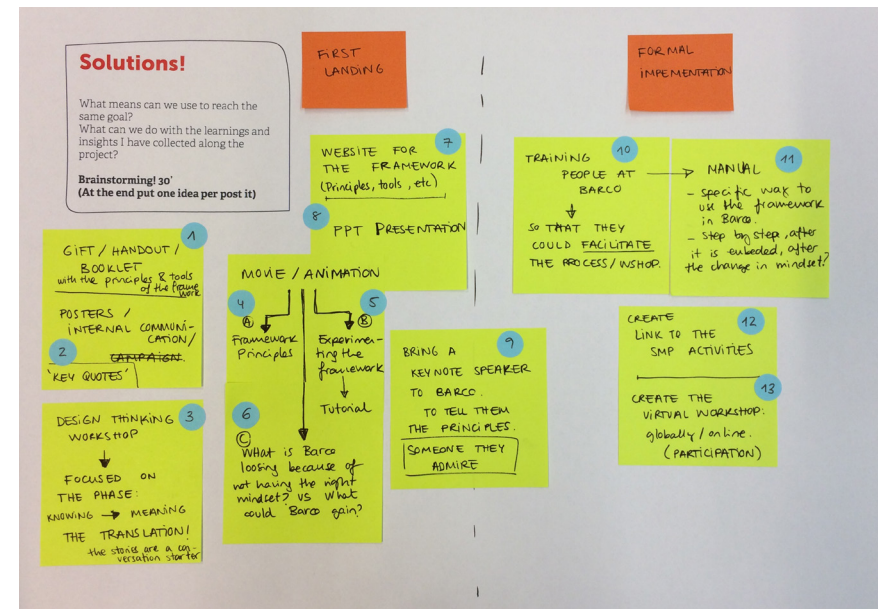 Solutions!
What means can we use to reach the
same goal?
What can we do with the learnings and
insights I have collected along the
project?
Brainstorming! 30'
(At the end put one idea per post it)
FIRST
LANDING
FORMAL
IMPEMENTATION
1
GIFT / HANDOUT /
BOOKLET
with the principles & tools
of the frame
work
POSTERS /
INTERNAL COMMUNI-
CATION /
CAMPAIGN.
2
'KEY QUOTES'
3
DESIGN THINKING
WORKSHOP
FOCUSED ON
THE PHASE:
KNOWING → MEANING
THE TRANSLATION!
the stories are a con-
versation starter
7
WEBSITE FOR
THE FRAMEWORK
(Principles, tools, etc)
8
PPT PRESENTATION
MOVIE / ANIMATION
4
A
Framework
Principles
5
B
Experimen-
ting the
framework
Tutorial
6
C
What is Barco
loosing because of
not having the right
mindset? vs What
could Barco gain?
9
BRING A
KEYNOTE SPEAKER
TO BARCO.
TO TELL THEM
THE PRINCIPLES.
SOMEONE THEY
ADMIRE
10
TRAINING
PEOPLE AT
BARCO
SO THAT THEY
COULD FACILITATE
THE PROCESS / WSHOP.
11
MANUAL
- specific way to
use the framework
in Barco.
- Step by step, after
it is embeded, after
the change in mindset?
12
CREATE
LINK TO THE
SMP ACTIVITIES
13
CREATE THE
VIRTUAL WORKSHOP.
globally / online.
(PARTICIPATION)